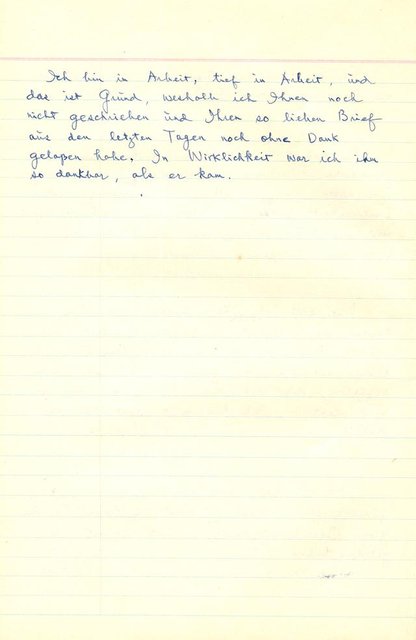 Ich bin in Arbeit, tief in Arbeit, und
das ist Grund, weshalb ich Ihnen noch
nicht geschrieben und Ihren so lieben Brief
aus den letzten Tagen noch ohne Dank
gelassen habe. In Wirklichkeit war ich ihm
so dankbar, als er kam.